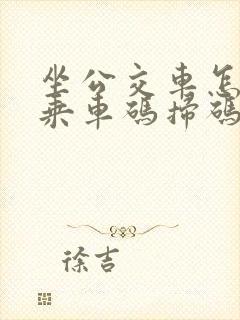 坐公交車怎
乘車碼掃碼
徐吉